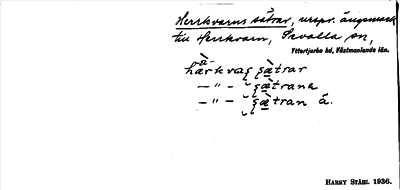 Herrkvarns sätrar, urspr. ängsmark
till Herrkvarn, Sevalla sn,
Yttertjurbo hd, Västmanlands län.
-à-
hærkvaɳ sætrar
— " — sætrana
— " — sætran ä.
HARRY STÅHL 1936.